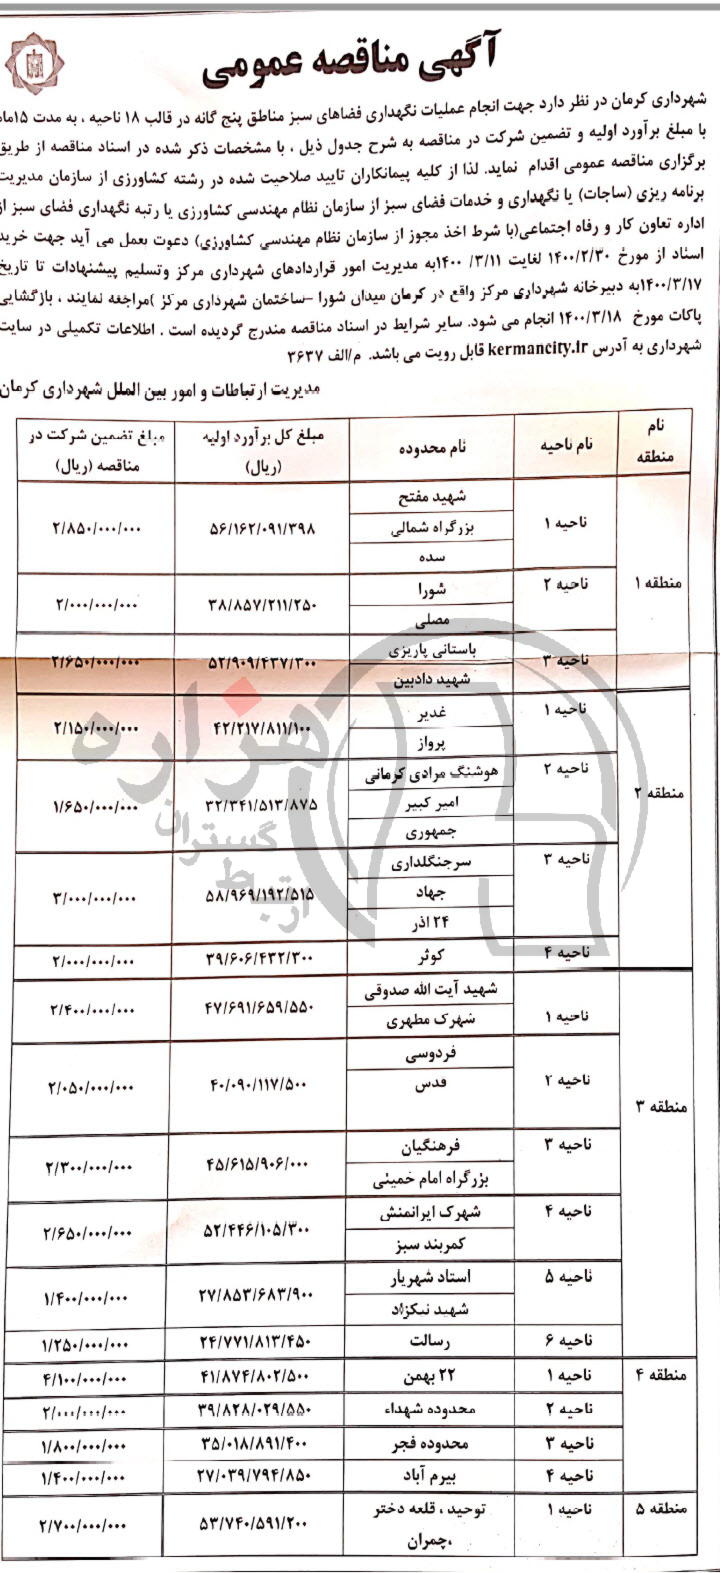 آگهی مناقصه عمومی
شهرداری کرمان در نظر دارد جهت انجام عملیات نگهداری فضاهای سبز مناطق پنج گانه در قالب ۱۸ ناحیه ، به مدت ۱۵ماه
با مبلغ برآورد اولیه و تضمین شرکت در مناقصه به شرح جدول ذیل ، با مشخصات ذکر شده در اسناد مناقصه از طریق
برگزاری مناقصه عمومی اقدام نماید. لذا از کلیه پیمانکاران تایید صلاحیت شده در رشته کشاورزی از سازمان مدیریت
برنامه ریزی (ساجات) یا نگهداری و خدمات فضای سبز از سازمان نظام مهندسی کشاورزی یا رتبه نگهداری فضای سبز از
اداره تعاون کار و رفاه اجتماعی(با شرط اخذ مجوز از سازمان نظام مهندسی کشاورزی) دعوت بعمل می آید جهت خرید
اسناد از مورخ ۱۴۰۰/۲/۳۰ لغایت ۱۴۰۰/۳/۱۱به مدیریت امور قراردادهای شهرداری مرکز وتسلیم پیشنهادات تا تاریخ
۱۴۰۰/۳/۱۷به دبیرخانه شهرداری مرکز واقع در کرمان میدان شورا –ساختمان شهرداری مرکز )مراجعه نمایند ، بازگشایی
پاکات مورخ ۱۴۰۰/۳/۱۸ انجام می شود. سایر شرایط در اسناد مناقصه مندرج گردیده است . اطلاعات تکمیلی در سایت
شهرداری به آدرس kermancity.ir قابل رویت می باشد. م/الف ۳۶۳۷
مدیریت ارتباطات و امور بین الملل شهرداری کرمان
نام منطقه نام ناحیه نام محدوده مبلغ کل برآورد اولیه (ریال) مبلغ تضمین شرکت در مناقصه (ریال)
منطقه ۱
ناحیه ۱
شهید مفتح
بزرگراه شمالی
سده
۵۶/۱۶۲/۰۹۱/۳۹۸ ۲/۸۵۰/۰۰۰/۰۰۰
ناحیه ۲
شورا
مصلی
۳۸/۸۵۷/۲۱۱/۲۵۰ ۲/۰۰۰/۰۰۰/۰۰۰
ناحیه ۳
باستانی پاریزی
شهید دادبین
۵۲/۹۰۹/۴۳۷/۳۰۰ ۲/۶۵۰/۰۰۰/۰۰۰
منطقه ۲
ناحیه ۱
غدیر
پرواز
۴۲/۲۱۷/۸۱۱/۱۰۰ ۲/۱۵۰/۰۰۰/۰۰۰
ناحیه ۲
هوشنگ مرادی کرمانی
امیر کبیر
جمهوری
۳۲/۳۴۱/۵۱۳/۸۷۵ ۱/۶۵۰/۰۰۰/۰۰۰
ناحیه ۳
سرجنگلداری
جهاد
۲۴ اذر
۵۸/۹۶۹/۱۹۲/۵۱۵ ۳/۰۰۰/۰۰۰/۰۰۰
ناحیه ۴ کوثر ۳۹/۶۰۶/۴۳۲/۳۰۰ ۲/۰۰۰/۰۰۰/۰۰۰
منطقه ۳
ناحیه ۱
شهید آیت الله صدوقی
شهرک مطهری
۴۷/۶۹۱/۶۵۹/۵۵۰ ۲/۴۰۰/۰۰۰/۰۰۰
ناحیه ۲
فردوسی
قدس
۴۰/۰۹۰/۱۱۷/۵۰۰ ۲/۰۵۰/۰۰۰/۰۰۰
ناحیه ۳
فرهنگیان
بزرگراه امام خمینی
۴۵/۶۱۵/۹۰۶/۰۰۰ ۲/۳۰۰/۰۰۰/۰۰۰
ناحیه ۴
شهرک ایرانمنش
کمربند سبز
۵۲/۴۴۶/۱۰۵/۳۰۰ ۲/۶۵۰/۰۰۰/۰۰۰
ناحیه ۵
استاد شهریار
شهید نیکزاد
۲۷/۸۵۳/۶۸۳/۹۰۰ ۱/۴۰۰/۰۰۰/۰۰۰
ناحیه ۶ رسالت ۲۴/۷۷۱/۸۱۳/۴۵۰ ۱/۲۵۰/۰۰۰/۰۰۰
منطقه ۴
ناحیه ۱ ۲۲ بهمن ۴۱/۸۷۴/۸۰۲/۵۰۰ ۴/۱۰۰/۰۰۰/۰۰۰
ناحیه ۲ محدوده شهداء ۳۹/۸۲۸/۰۲۹/۵۵۰ ۲/۰۰۰/۰۰۰/۰۰۰
ناحیه ۳ محدوده فجر ۳۵/۰۱۸/۸۹۱/۴۰۰ ۱/۸۰۰/۰۰۰/۰۰۰
ناحیه ۴ بیرم آباد ۲۷/۰۳۹/۷۹۴/۸۵۰ ۱/۴۰۰/۰۰۰/۰۰۰
منطقه ۵
ناحیه ۱
توحید ، قلعه دختر
،چمران
۵۳/۷۴۰/۵۹۱/۲۰۰ ۲/۷۰۰/۰۰۰/۰۰۰
هزاره
گستران
ارتباط